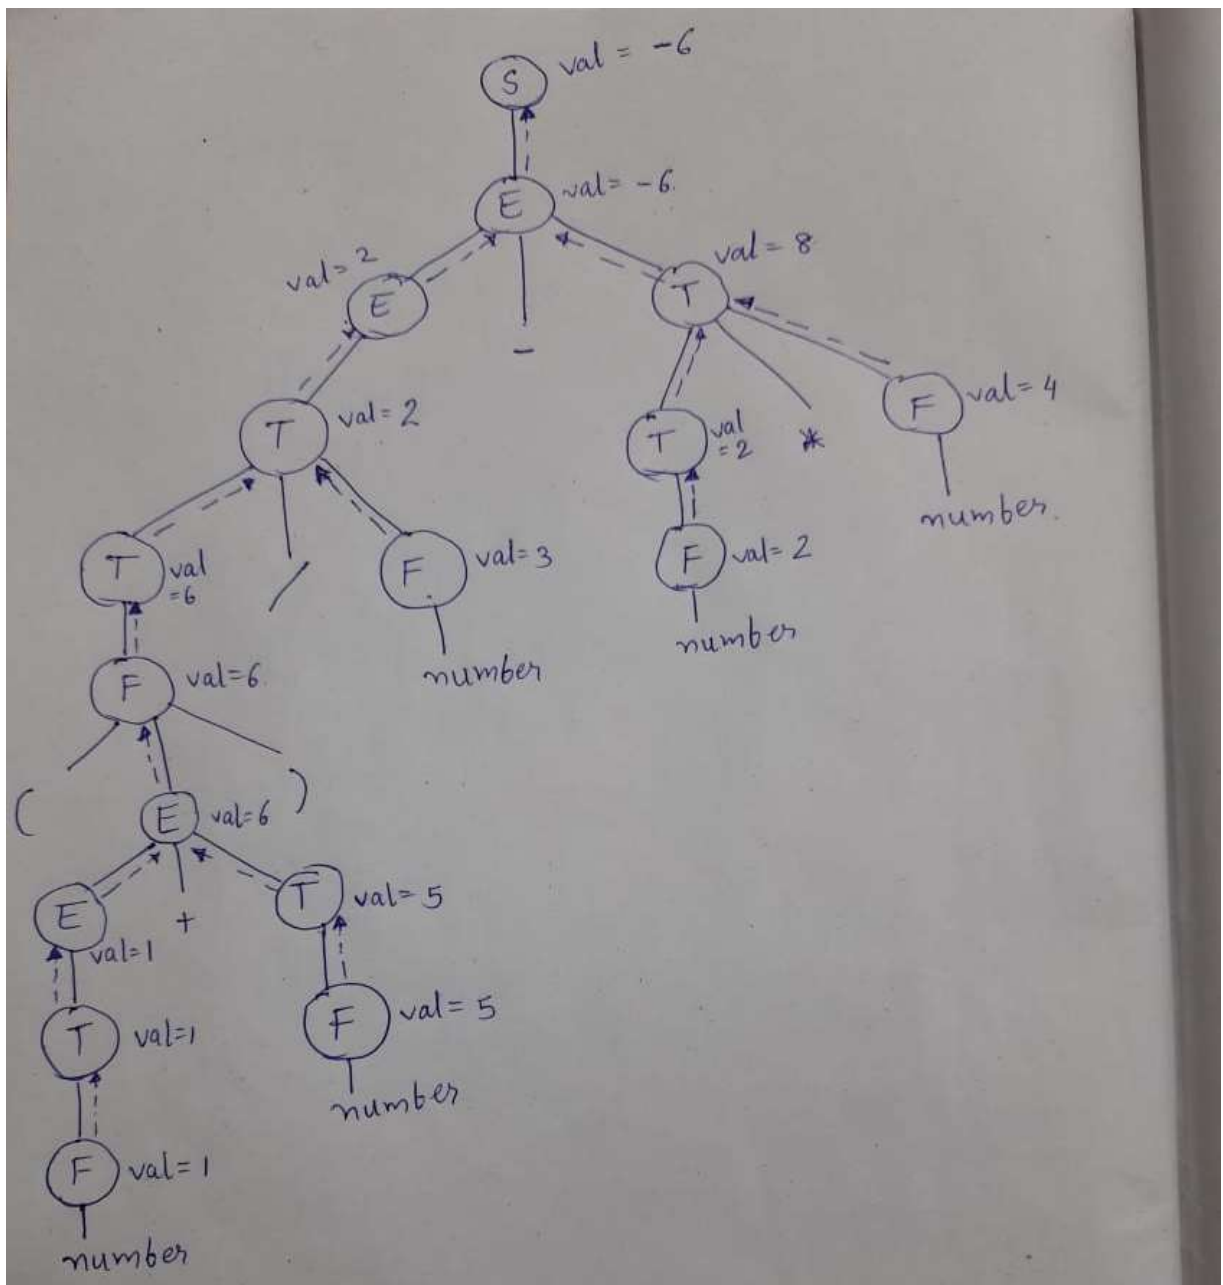 S val = -6
E val= -6.
val= 2
E
-
T val = 8
T val= 2
T val = 2
*
F val= 4
number.
T val = 6
/
F val= 3
number
F val= 2
number
F val=6.
(
E val=6
)
E val=1
+
T val= 5
T val=1
F val= 5
number
F val= 1
number